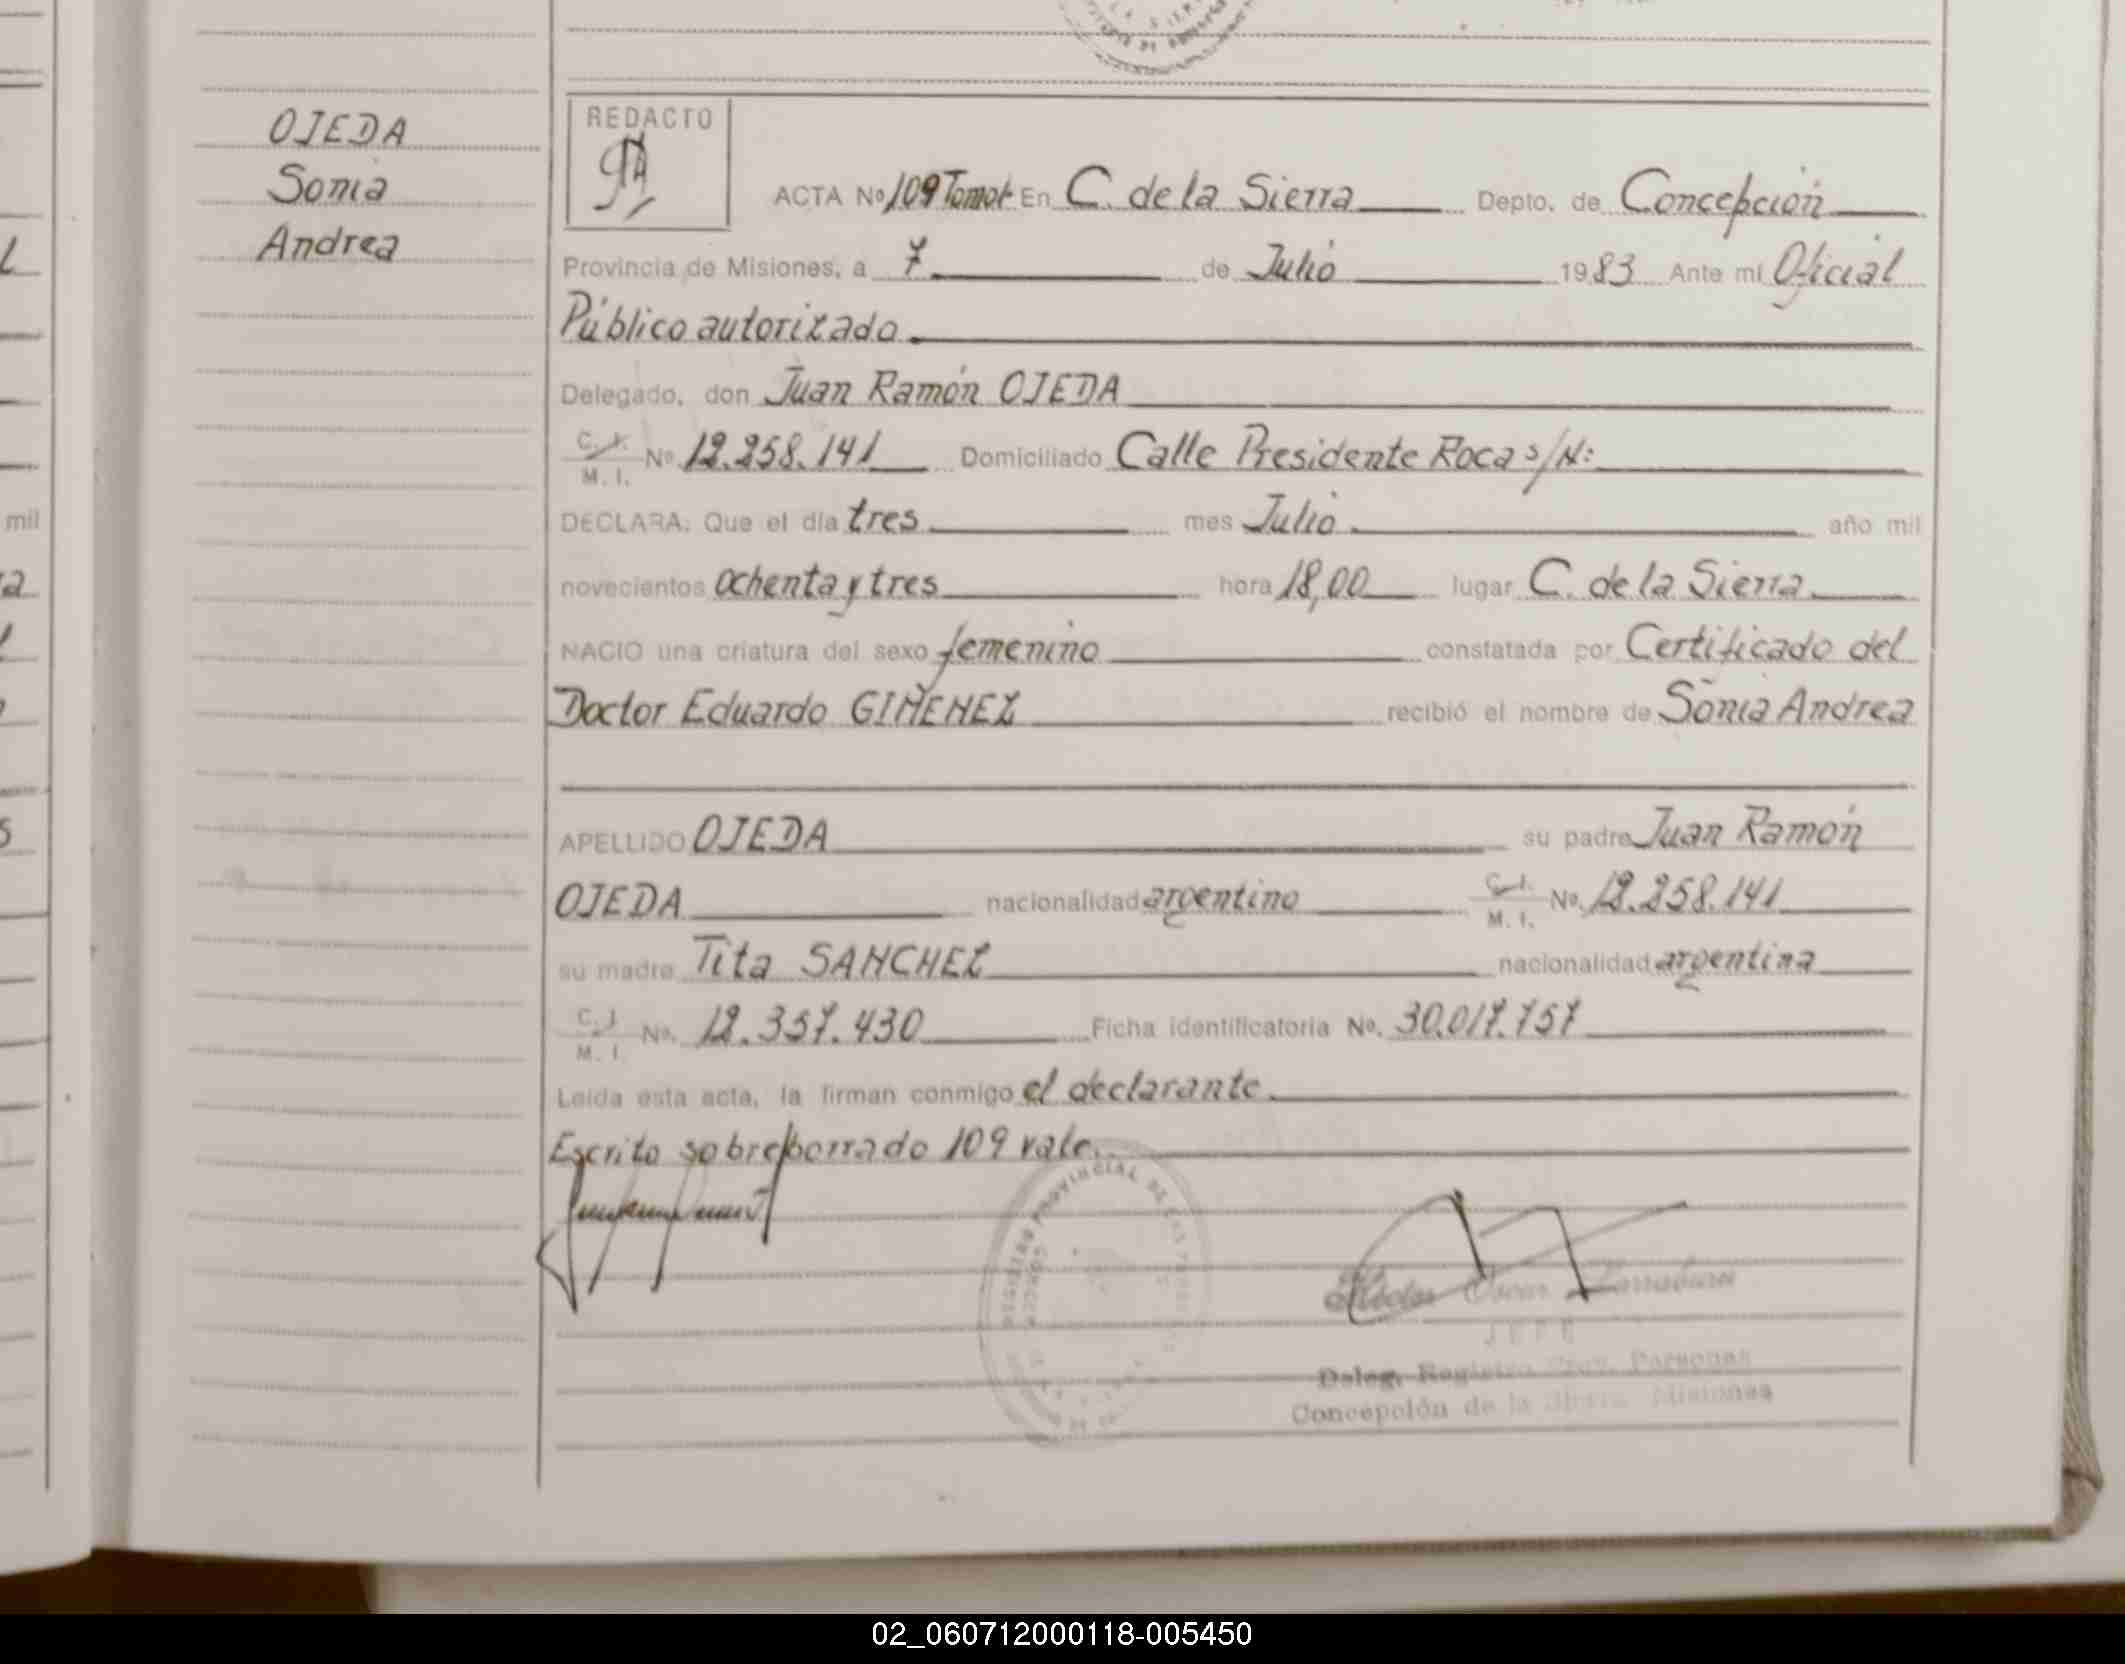 OJEDA
Sonia
Andrea
REDACTO
ACTA Nº 109 Tomo I En C. de la Sierra Depto. de Concepción
Provincia de Misiones, a 7 de Julio 1983 Ante mí Oficial
Público autorizado
Delegado, don Juan Ramón OJEDA
C. I. M. I. Nº 12.258.141 Domiciliado Calle Presidente Roca s/N:
DECLARA: Que el día tres mes Julio año mil
novecientos ochenta y tres hora 18,00 lugar C. de la Sierra
NACIO una criatura del sexo femenino constatada por Certificado del
Doctor Eduardo GIMENEZ recibió el nombre de Sonia Andrea
APELLIDO OJEDA su padre Juan Ramón
OJEDA nacionalidad argentino C. I. M. I. Nº 12.258.141
su madre Tita SANCHEZ nacionalidad argentina
C. I. M. I. Nº 12.357.430 Ficha identificatoria Nº. 30.017.757
Leída esta acta, la firman conmigo el declarante.
Escrito sobreborrado 109 vale.
REGISTRO PROVINCIAL DE LAS
Oscar
JEFE
Deleg. Registro Prov. Personas
Concepción de la Sierra Misiones
mil
02_060712000118-005450